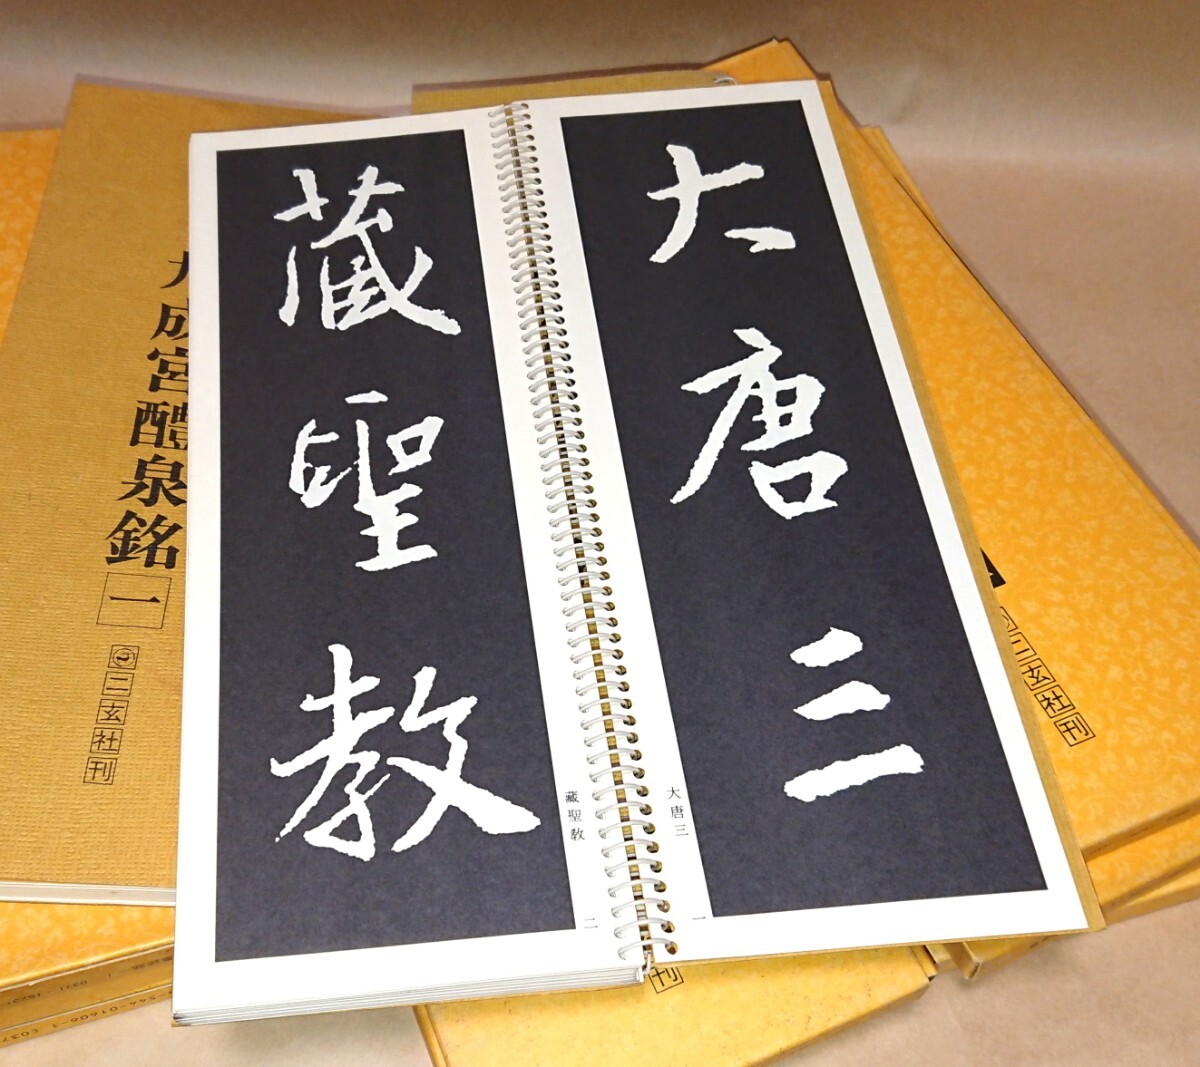 大唐三
藏聖教
大唐三
一
藏聖教
二
九成宮醴泉銘 一
二玄社刊
二玄社刊
刊